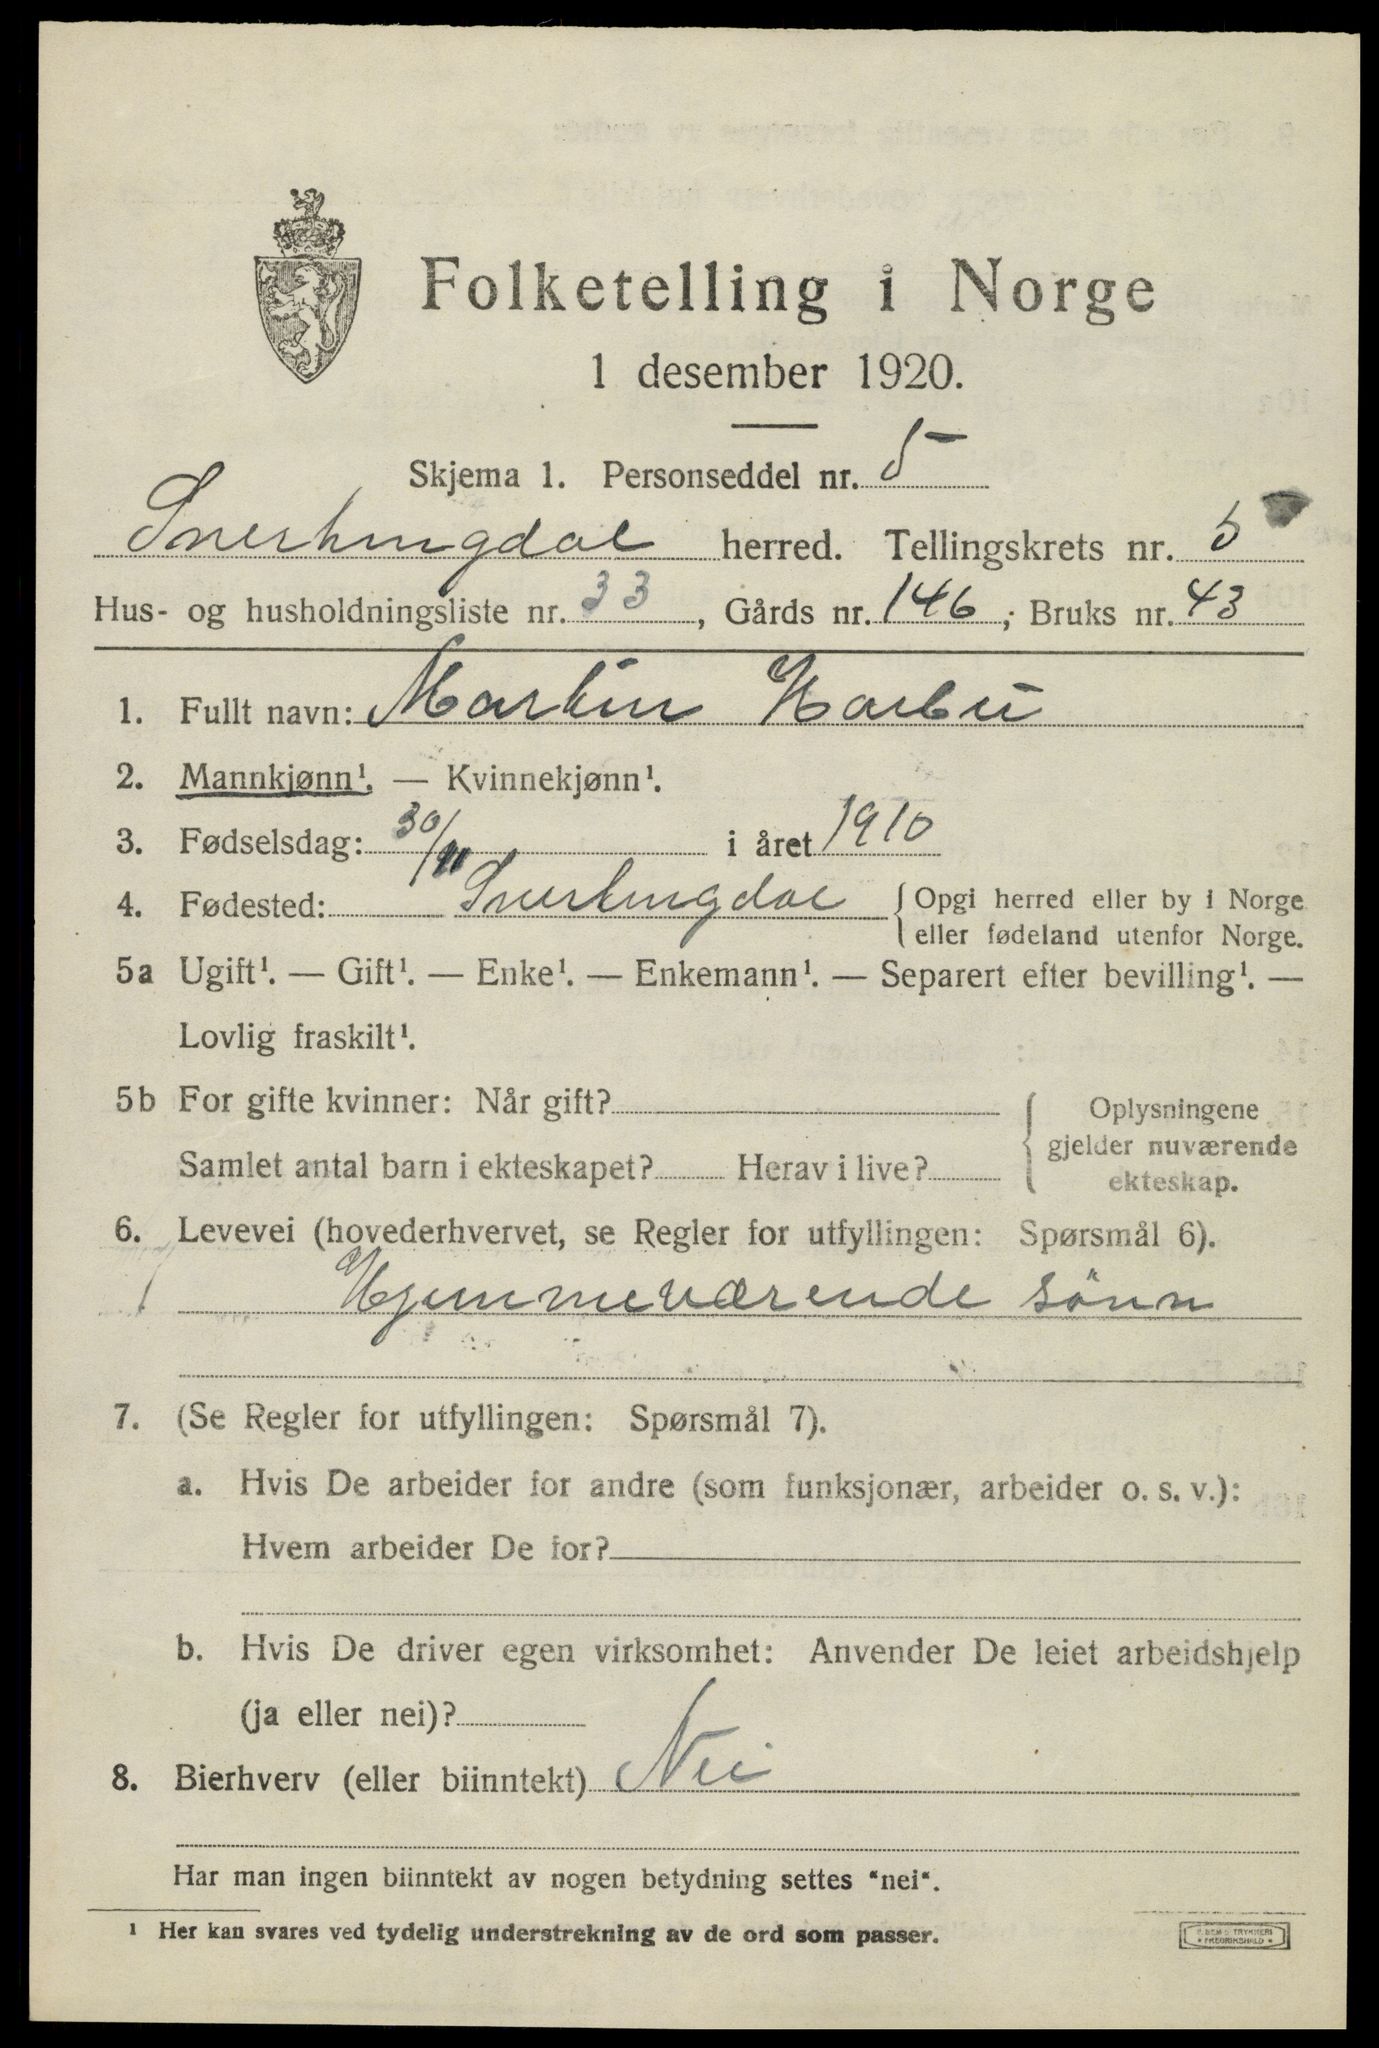 Folketelling i Norge
1 desember 1920.
Skjema 1. Personseddel nr. 5
Snertingdal herred. Tellingskrets nr. 5
Hus- og husholdningsliste nr. 33, Gårds nr. 146, Bruks nr. 43
1. Fullt navn: Martin Harbu
2. Mannkjønn¹. — Kvinnekjønn¹.
3. Fødselsdag: 30/11 i året 1910
4. Fødested: Snertingdal { Opgi herred eller by i Norge
eller fødeland utenfor Norge.
5a Ugift¹. — Gift¹. — Enke¹. — Enkemann¹. — Separert efter bevilling¹. —
Lovlig fraskilt¹.
5b For gifte kvinner: Når gift? { Oplysningene
gjelder nuværende
Samlet antal barn i ekteskapet? Herav i live?
ekteskap.
6. Levevei (hovederhvervet, se Regler for utfyllingen: Spørsmål 6).
Hjemmeværende sönn
7. (Se Regler for utfyllingen: Spørsmål 7).
a. Hvis De arbeider for andre (som funksjonær, arbeider o. s. v.):
Hvem arbeider De for?
b. Hvis De driver egen virksomhet: Anvender De leiet arbeidshjelp
(ja eller nei)?
8. Bierhverv (eller biinntekt) Nei
Har man ingen biinntekt av nogen betydning settes "nei".
¹ Her kan svares ved tydelig understrekning av de ord som passer.
TRYKKERI
FREDRIKSHALD